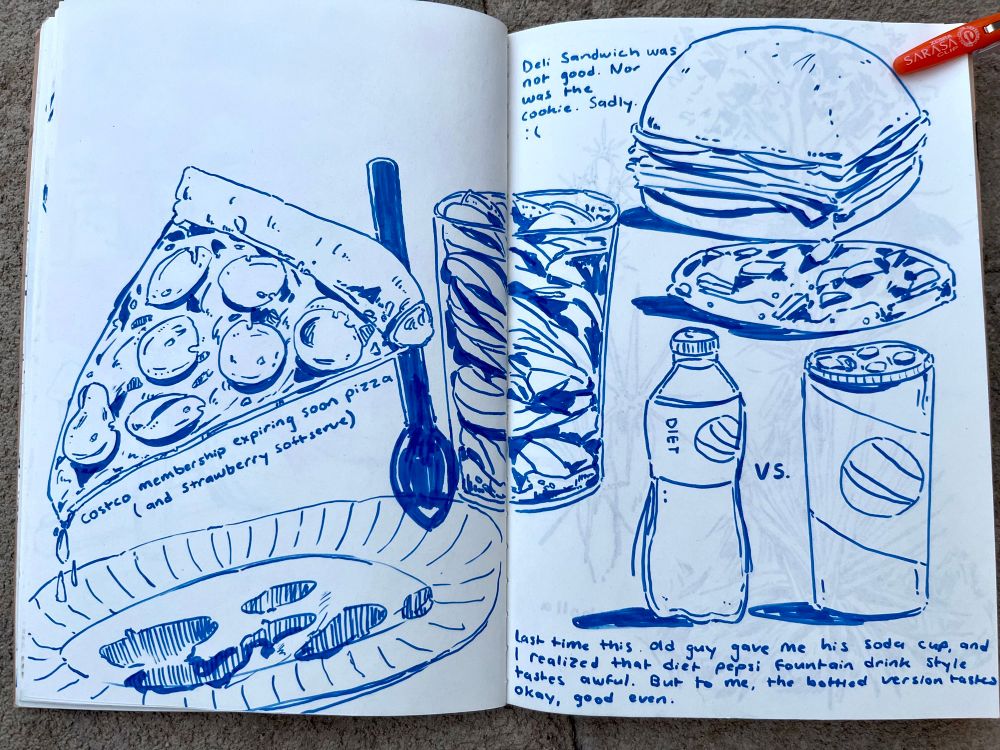 costco membership expiring soon pizza
(and strawberry softserve)
Deli Sandwich was
not good. Nor
was the
cookie. Sadly.
:(
SARASA
CLIP
DIET
VS.
Last time this old guy gave me his soda cup, and
I realized that diet pepsi fountain drink style
tastes awful. But to me, the bottled version tastes
okay, good even.